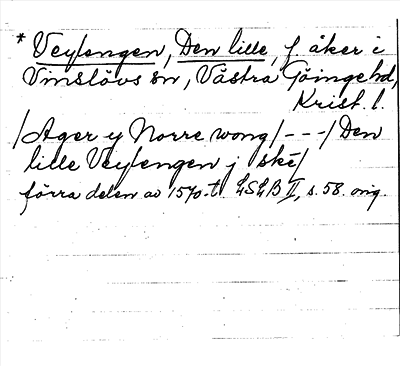 * Veylengen, Den lille, f åker i
Vinslövs sn, Västra Göinge hd,
Krist. l.
/Ager y Norre wong/---/Den
lille Veylengen j skē/
förra delen av 1570-t. LSLB II, s. 58. orig.